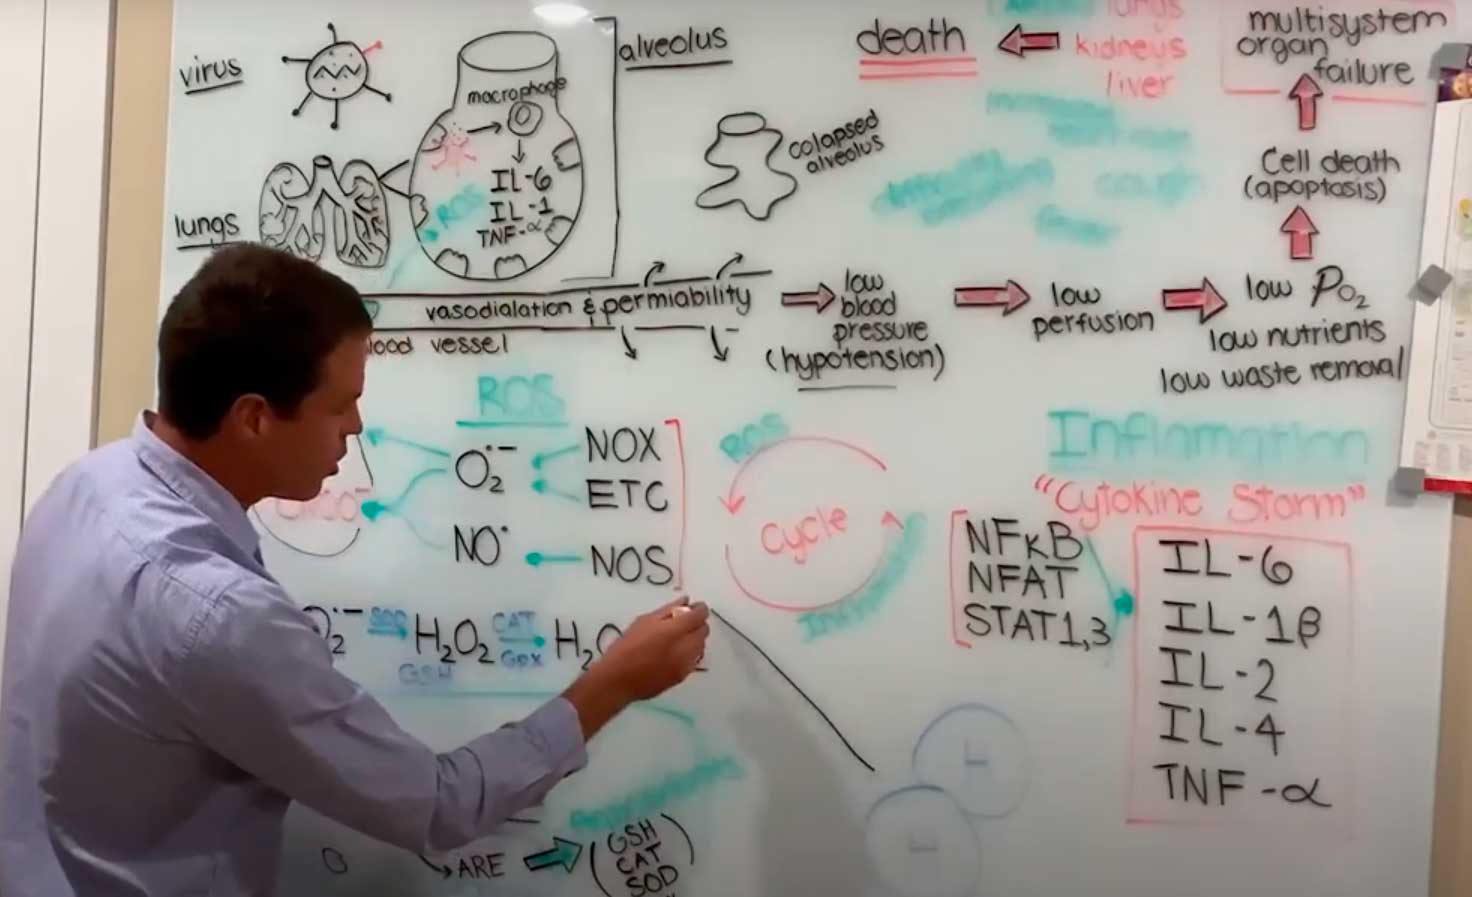 virus
macrophage
IL-6
IL-1
TNF-α
ROS
lungs
alveolus
colapsed
alveolus
death
lungs
kidneys
liver
multisystem
organ
failure
Cell death
(apoptosis)
vasodialation & permiability
lood vessel
low
blood
pressure
(hypotension)
low
perfusion
low PO2
low nutrients
low waste removal
ROS
O2•− NOX
ETC
NO• NOS
O2•− SOD H2O2 CAT H2O
GSH GPX
ROS
Cycle
Inflamation
"Cytokine Storm"
NFκB
NFAT
STAT1,3
IL-6
IL-1β
IL-2
IL-4
TNF-α
H
H
ARE
(GSH
CAT
SOD)